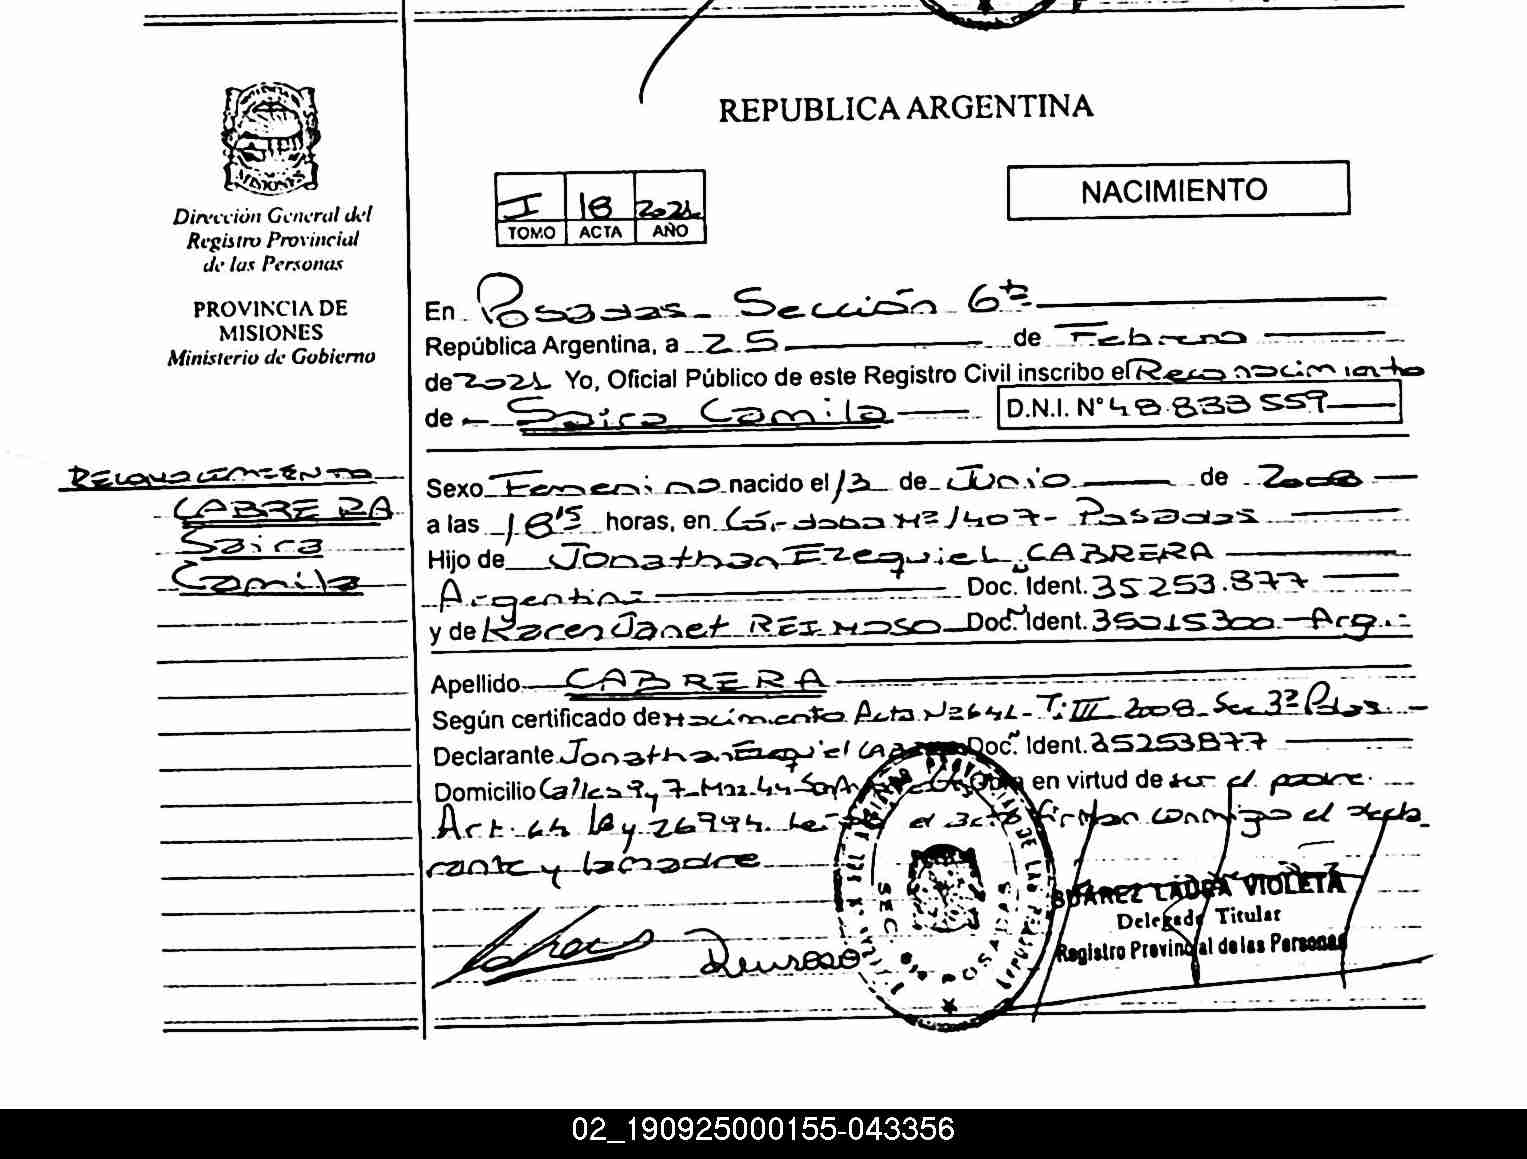 REPUBLICA ARGENTINA
MISIONES
Dirección General del
Registro Provincial
de las Personas
PROVINCIA DE
MISIONES
Ministerio de Gobierno
I 18 2021
TOMO ACTA AÑO
NACIMIENTO
En Posadas - Sección 6ta
República Argentina, a 25 de Febrero
de 2021 Yo, Oficial Público de este Registro Civil inscribo el Reconocimiento
de Saira Camila D.N.I. N° 48.833559
RECONOCIMIENTO
CABRERA
Saira
Camila
Sexo Femenino nacido el 13 de Junio de 2008
a las 18'15 horas, en Córdoba Nº 1407 - Posadas
Hijo de Jonathan Ezequiel CABRERA
Argentina Doc. Ident. 35253.877
y de Karen Janet REINOSO Doc. Ident. 35015300 - Arg.
Apellido CABRERA
Según certificado de Nacimiento Acta Nº 641 - T: III 2008 - Sec 3ª Pdas
Declarante Jonathan Ezequiel CABRERA Doc. Ident. 35253877
Domicilio Calles 9 y 7 - Mz. 44 - en virtud de ser el padre.
Art. 64 Ley 26994. Leída el acta firman conmigo el decla
rante y la madre
Reinoso
SEC. 6ta POSADAS
SUAREZ LAURA VIOLETA
Delegada Titular
Registro Provincial de las Personas
02_190925000155-043356